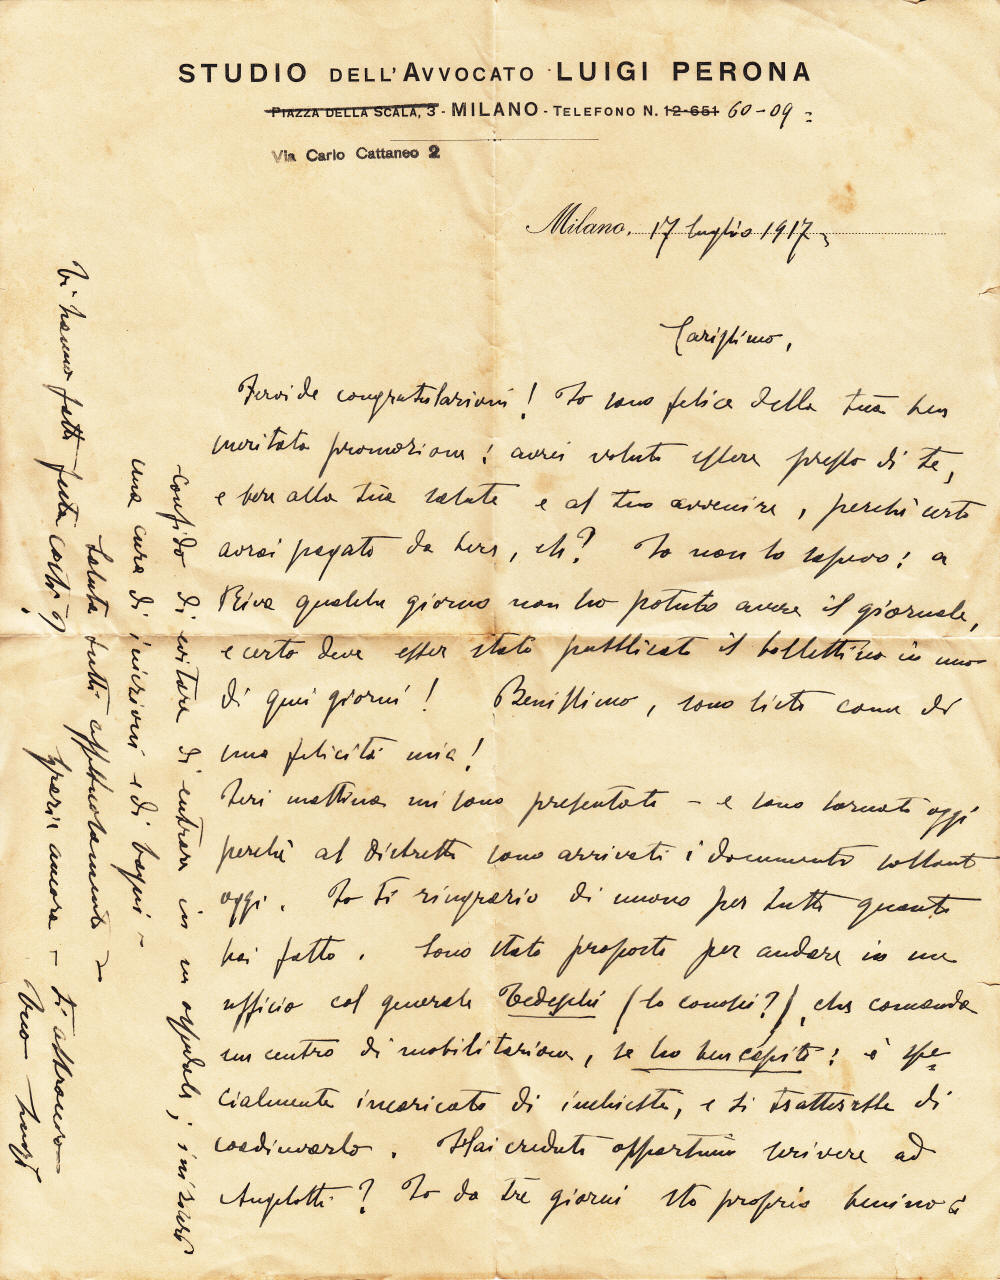 STUDIO DELL'AVVOCATO LUIGI PERONA
PIAZZA DELLA SCALA, 3 - MILANO - TELEFONO N. 12-651 60-09
Via Carlo Cattaneo 2
Milano, 17 luglio 1917
Carissimo,
Fervide congratulazioni! Io sono felice della tua ben
meritata promozione: avrei voluto essere presso di te,
e bere alla tua salute e al tuo avvenire, perchè certo
avrai pagato da bere, eh? Io non lo sapevo: a
Riva qualche giorno non ho potuto avere il giornale,
e certo deve esser stato pubblicato il bollettino in uno
di quei giorni! Benissimo, sono lieto come di
una felicità mia!
Ieri mattina mi sono presentato - e sono tornato oggi
perchè al distretto sono arrivati i documenti soltanto
oggi. Io ti ringrazio di nuovo per tutto quanto
hai fatto. Sono stato proposto per andare in un
ufficio col generale Tedeschi (lo conosci?), che comanda
un centro di mobilitazione, se ho ben capito: è spe-
cialmente incaricato di inchieste, e si tratterebbe di
coadiuvarlo. Hai creduto opportuno scrivere ad
Angelotti? Io da tre giorni sto proprio benino:
confido di evitare di entrare in un ospedale; inizierò
una cura di iniezioni e di bagni -
Saluta tutti affettuosamente -
Ti hanno fatto festa costì?
Grazie ancora - ti abbraccio
Tuo Luigi